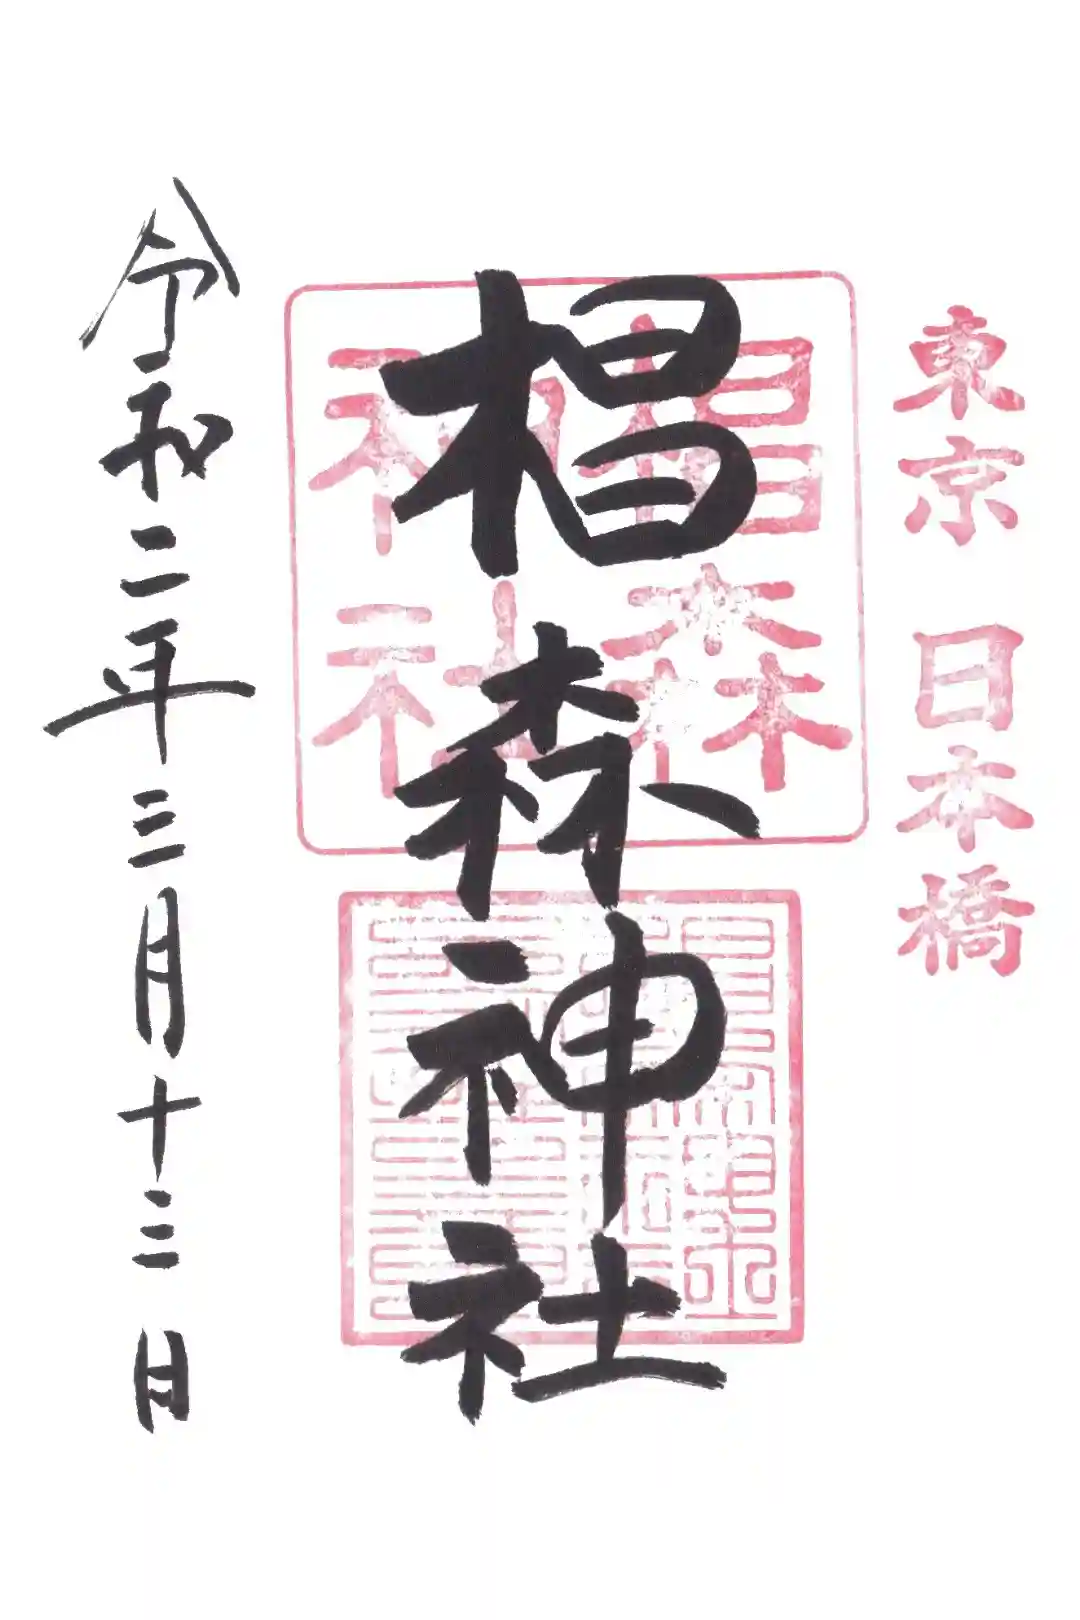 東京 日本橋
椙森神社
椙森神社
令和二年三月十三日